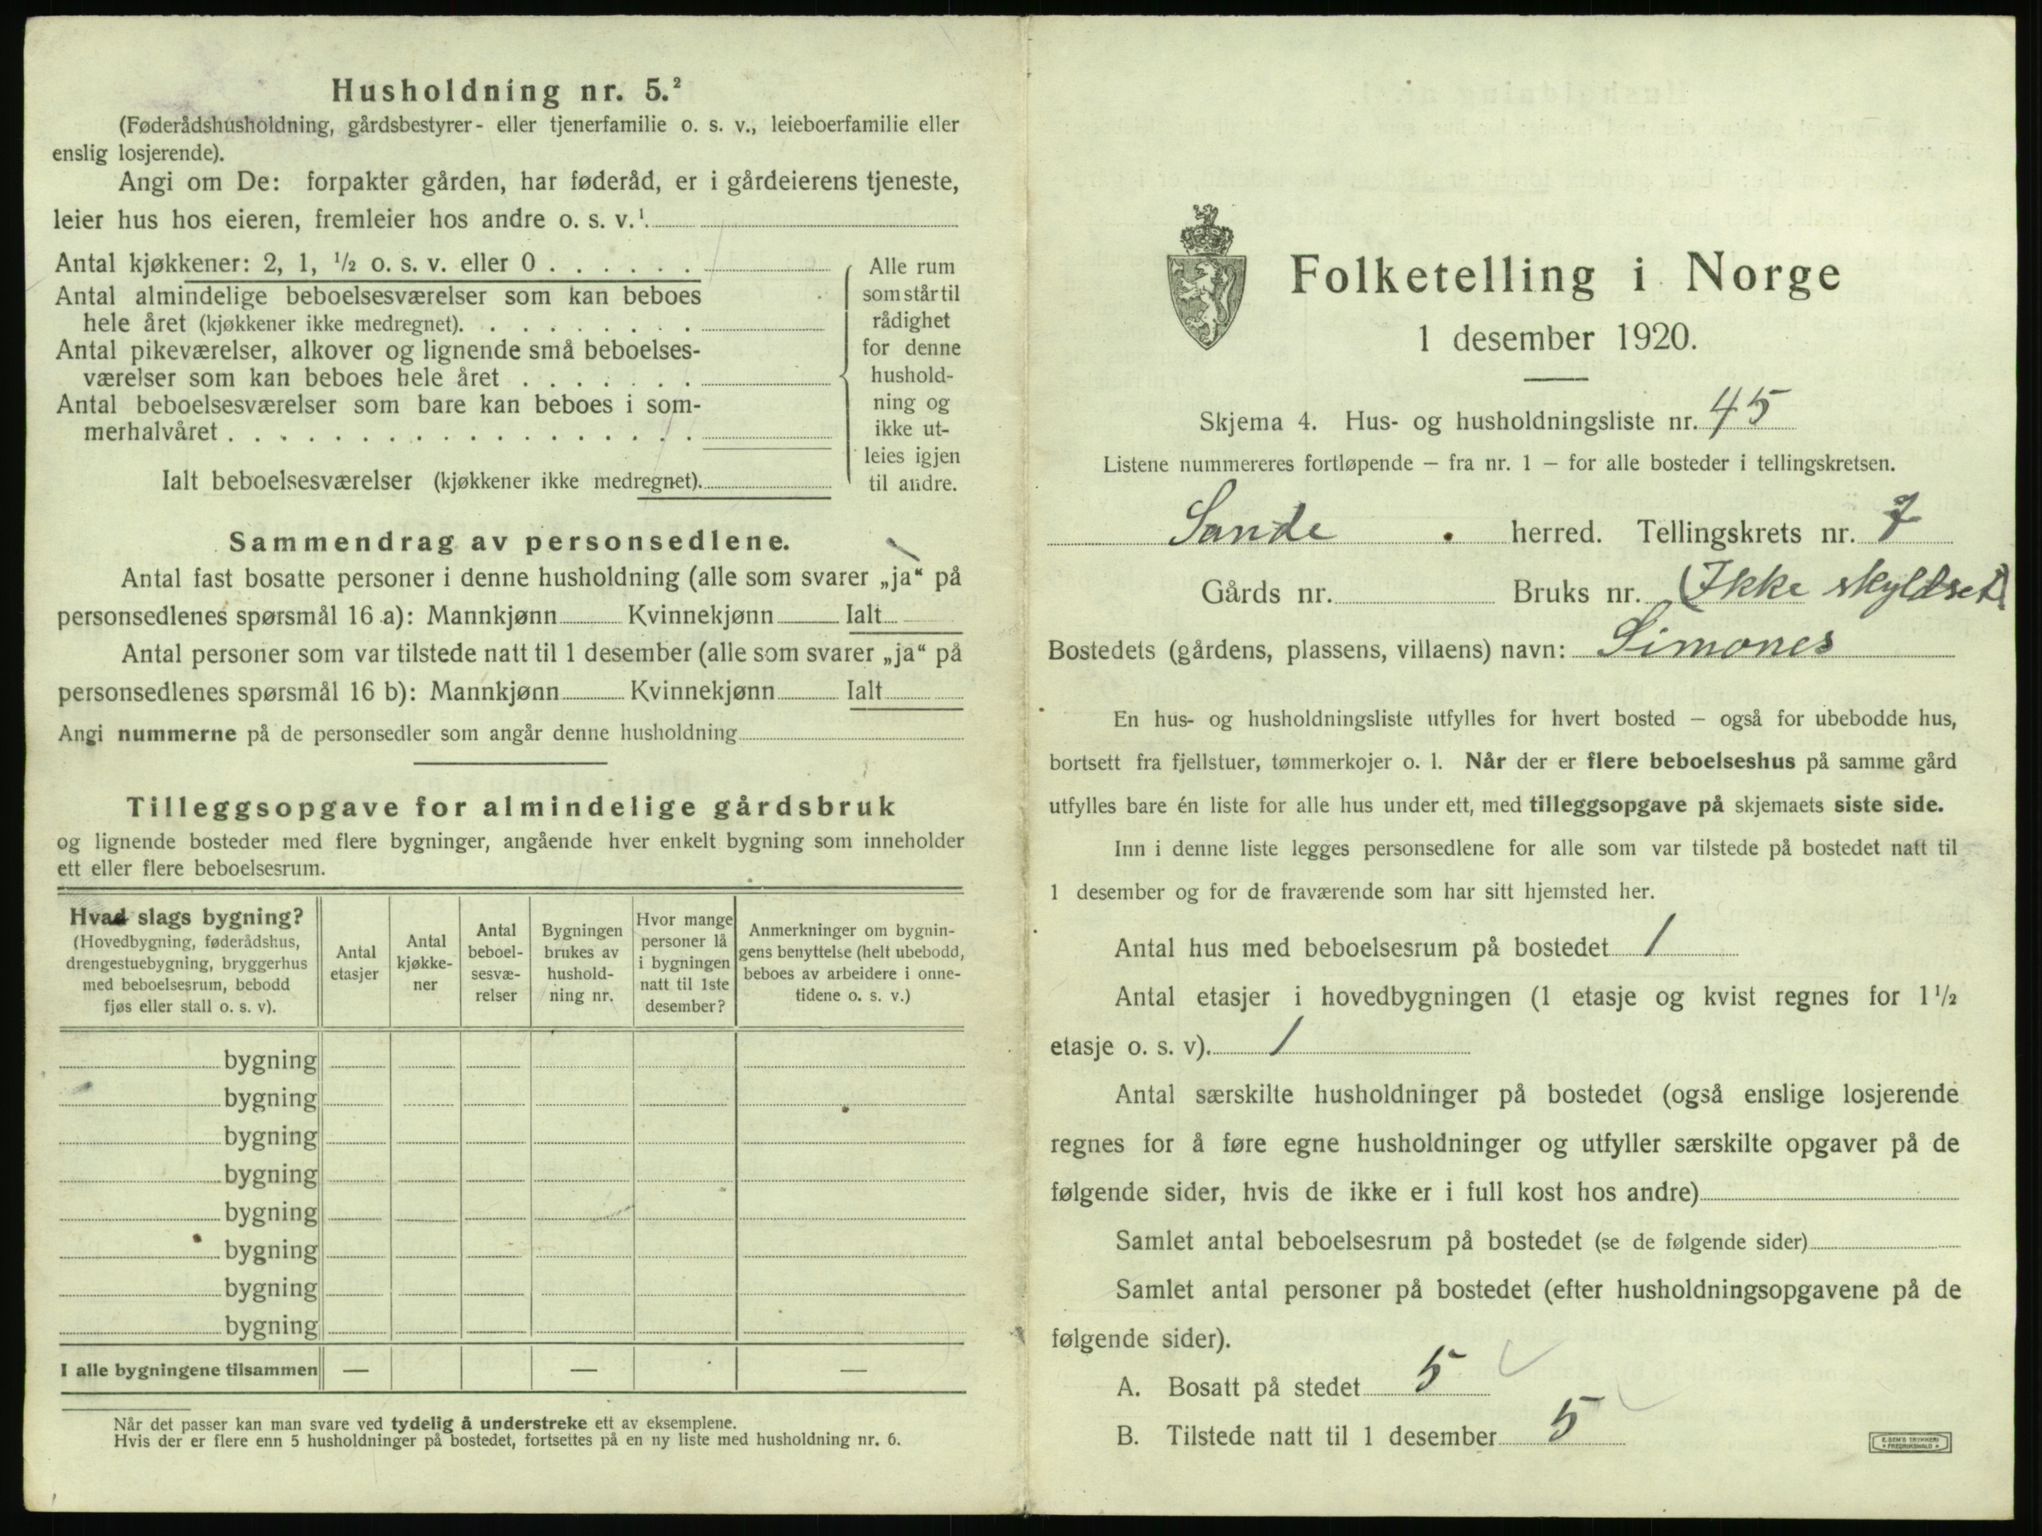 Husholdning nr. 5.²
(Føderådshusholdning, gårdsbestyrer- eller tjenerfamilie o. s. v., leieboerfamilie eller
enslig losjerende).
Angi om De: forpakter gården, har føderåd, er i gårdeierens tjeneste,
leier hus hos eieren, fremleier hos andre o. s. v.¹
Antal kjøkkener: 2, 1, ½ o. s. v. eller 0 . . . . . .
Antal almindelige beboelsesværelser som kan beboes
hele året (kjøkkener ikke medregnet). . . . . . . . .
Antal pikeværelser, alkover og lignende små beboelses-
værelser som kan beboes hele året . . . . . . .
Antal beboelsesværelser som bare kan beboes i som-
merhalvåret . . . . . . . . . . . . . . . . . .
Ialt beboelsesværelser (kjøkkener ikke medregnet).
Alle rum
som står til
rådighet
for denne
hushold-
ning og
ikke ut-
leies igjen
til andre.
Sammendrag av personsedlene.
Antal fast bosatte personer i denne husholdning (alle som svarer „ja“ på
personsedlenes spørsmål 16 a): Mannkjønn Kvinnekjønn Ialt
Antal personer som var tilstede natt til 1 desember (alle som svarer „ja“ på
personsedlenes spørsmål 16 b): Mannkjønn Kvinnekjønn Ialt
Angi nummerne på de personsedler som angår denne husholdning
Tilleggsopgave for almindelige gårdsbruk
og lignende bosteder med flere bygninger, angående hver enkelt bygning som inneholder
ett eller flere beboelsesrum.
Hvad slags bygning?
(Hovedbygning, føderådshus,
drengestuebygning, bryggerhus
med beboelsesrum, bebodd
fjøs eller stall o. s. v).
Antal
etasjer
Antal
kjøkke-
ner
Antal
beboel-
sesvæ-
relser
Bygningen
brukes av
hushold-
ning nr.
Hvor mange
personer lå
i bygningen
natt til 1ste
desember?
Anmerkninger om bygnin-
gens benyttelse (helt ubebodd,
beboes av arbeidere i onne-
tidene o. s. v.)
bygning
bygning
bygning
bygning
bygning
bygning
bygning
bygning
I alle bygningene tilsammen — — —
Når det passer kan man svare ved tydelig å understreke ett av eksemplene.
Hvis der er flere enn 5 husholdninger på bostedet, fortsettes på en ny liste med husholdning nr. 6.
Folketelling i Norge
1 desember 1920.
Skjema 4. Hus- og husholdningsliste nr. 45
Listene nummereres fortløpende – fra nr. 1 – for alle bosteder i tellingskretsen.
Sande herred. Tellingskrets nr. 7
Gårds nr. Bruks nr. (Ikke skyldsat)
Bostedets (gårdens, plassens, villaens) navn: Simones
En hus- og husholdningsliste utfylles for hvert bosted – også for ubebodde hus,
bortsett fra fjellstuer, tømmerkojer o. l. Når der er flere beboelseshus på samme gård
utfylles bare én liste for alle hus under ett, med tilleggsopgave på skjemaets siste side.
Inn i denne liste legges personsedlene for alle som var tilstede på bostedet natt til
1 desember og for de fraværende som har sitt hjemsted her.
Antal hus med beboelsesrum på bostedet 1
Antal etasjer i hovedbygningen (1 etasje og kvist regnes for 1½
etasje o. s. v). 1
Antal særskilte husholdninger på bostedet (også enslige losjerende
regnes for å føre egne husholdninger og utfyller særskilte opgaver på de
følgende sider, hvis de ikke er i full kost hos andre)
Samlet antal beboelsesrum på bostedet (se de følgende sider)
Samlet antal personer på bostedet (efter husholdningsopgavene på de
følgende sider).
A. Bosatt på stedet 5
B. Tilstede natt til 1 desember 5
E. SEM'S TRYKKERI
FREDRIKSHALD